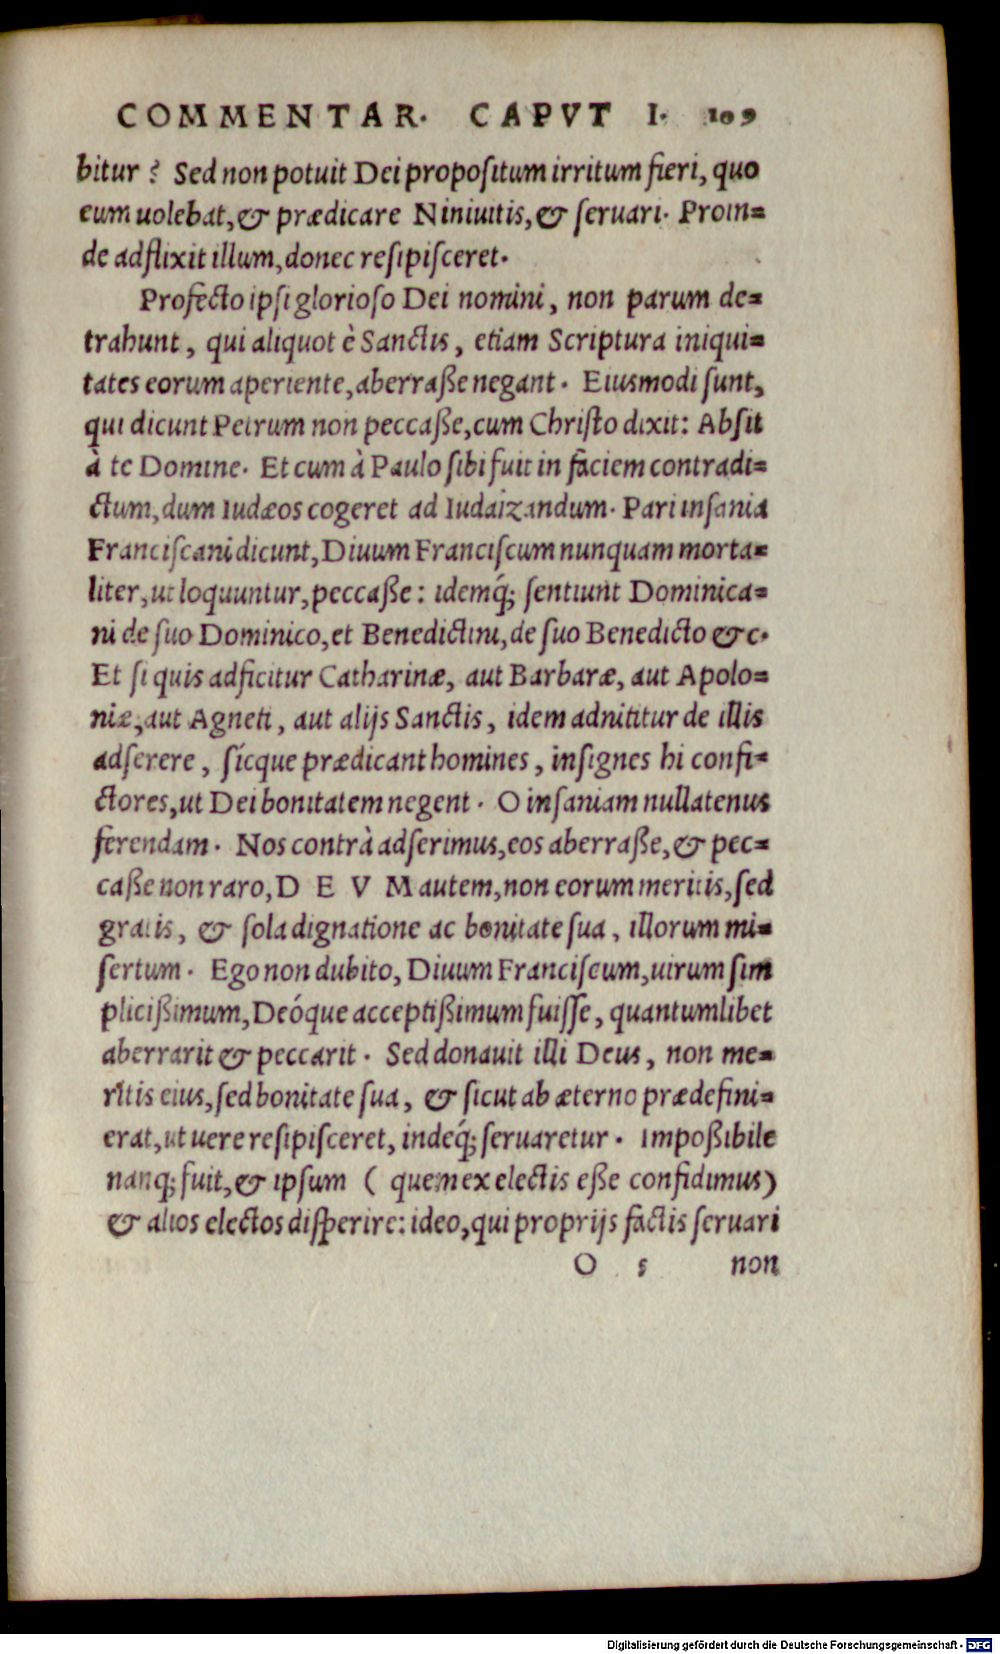 COMMENTAR. CAPVT I. 109
bitur? Sed non potuit Dei propoſitum irritum fieri, quo
eum uolebat, & prædicare Niniuitis, & ſeruari. Proin=
de adflixit illum, donec reſipiſceret.
Profecto ipſi glorioſo Dei nomini, non parum de=
trahunt, qui aliquot è Sanctis, etiam Scriptura iniqui=
tates eorum aperiente, aberraße negant. Eiusmodi ſunt,
qui dicunt Petrum non peccaße, cum Chriſto dixit: Abſit
à te Domine. Et cum à Paulo ſibi fuit in faciem contradi=
ctum, dum Iudæos cogeret ad Iudaizandum. Pari inſania
Franciſcani dicunt, Diuum Franciſcum nunquam morta=
liter, ut loquuntur, peccaße: idemq́; ſentiunt Dominica=
ni de ſuo Dominico, et Benedictini, de ſuo Benedicto &c.
Et ſi quis adficitur Catharinæ, aut Barbaræ, aut Apolo=
niæ, aut Agneti, aut alijs Sanctis, idem adnititur de illis
adſerere, ſicque prædicant homines, inſignes hi confi=
ctores, ut Dei bonitatem negent. O inſaniam nullatenus
ferendam. Nos contrà adſerimus, eos aberraße, & pec=
caße non raro, D E V M autem, non eorum meritis, ſed
gratis, & ſola dignatione ac bonitate ſua, illorum mi=
ſertum. Ego non dubito, Diuum Franciſcum, uirum ſim
plicißimum, Deóque acceptißimum fuiſſe, quantumlibet
aberrarit & peccarit. Sed donauit illi Deus, non me=
ritis eius, ſed bonitate ſua, & ſicut ab æterno prædefini=
erat, ut uere reſipiſceret, indeq́; ſeruaretur. Impoßibile
nanq; fuit, & ipſum (quem ex electis eße confidimus)
& alios electos diſperire: ideo, qui proprijs factis ſeruari
O 5 non
Digitalisierung gefördert durch die Deutsche Forschungsgemeinschaft - DFG